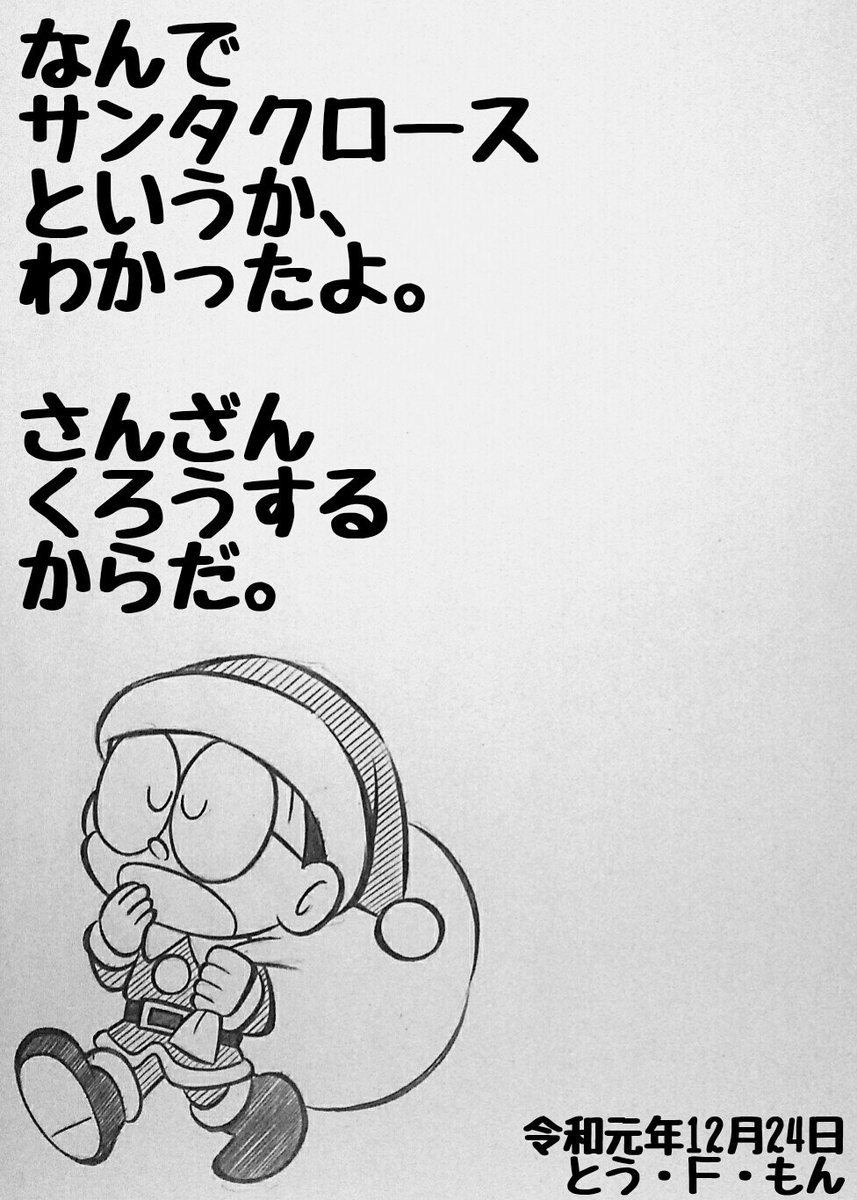 なんで
サンタクロース
というか、
わかったよ。
さんざん
くろうする
からだ。
令和元年12月24日
とう・F・もん